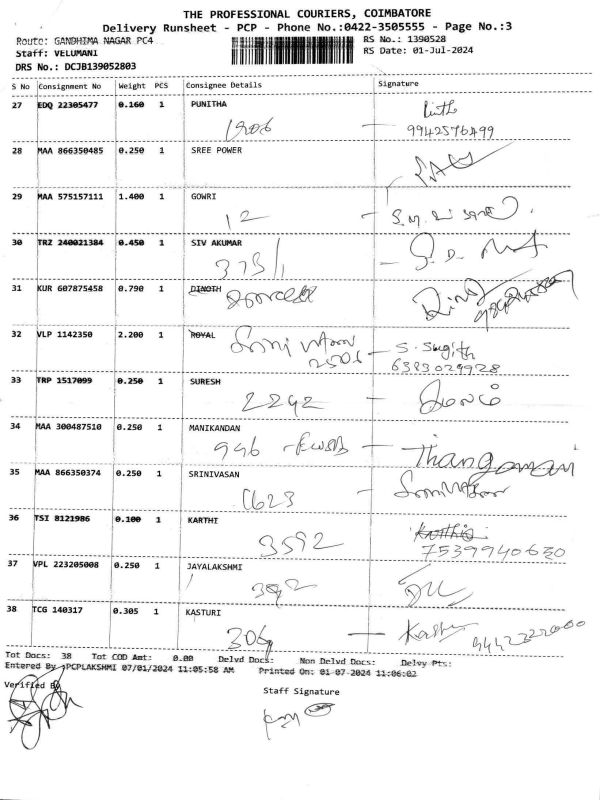 THE PROFESSIONAL COURIERS, COIMBATORE
Delivery Runsheet - PCP - Phone No.:0422-3505555 - Page No.:3
Route: GANDHIMA NAGAR PC4 RS No.: 1390528
Staff: VELUMANI RS Date: 01-Jul-2024
DRS No.: DCJB139052803
S No Consignment No Weight PCS Consignee Details Signature
27 EDQ 22305477 0.160 1 PUNITHA
1906 9942576499
28 MAA 866350485 0.250 1 SREE POWER
29 MAA 575157111 1.400 1 GOWRI
12
30 TRZ 240021384 0.450 1 SIV AKUMAR
31 KUR 607875458 0.790 1 DINOTH
32 VLP 1142350 2.200 1 ROYAL
2506 S. Sugith
6383029928
33 TRP 1517099 0.250 1 SURESH
2292
34 MAA 300487510 0.250 1 MANIKANDAN
946 Thangaman
35 MAA 866350374 0.250 1 SRINIVASAN
1623
36 TSI 8121986 0.100 1 KARTHI
3592 7539940630
37 VPL 223205008 0.250 1 JAYALAKSHMI
38 TCG 140317 0.305 1 KASTURI
306
Tot Docs: 38 Tot COD Amt: 0.00 Delvd Docs: Non Delvd Docs: Delvy Pts:
Entered By :PCPLAKSHMI 07/01/2024 11:05:58 AM Printed On: 01-07-2024 11:06:02
Verified By
Staff Signature